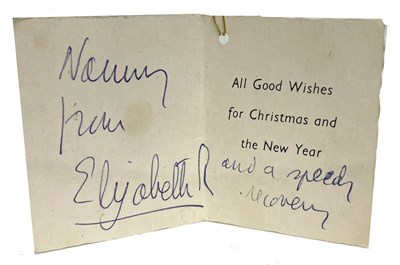 Nanny
from
Elizabeth R
All Good Wishes
for Christmas and
the New Year
and a speedy
recovery